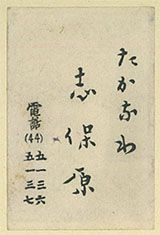 たかなわ
志保原
電話(44)五一三六
五一三七